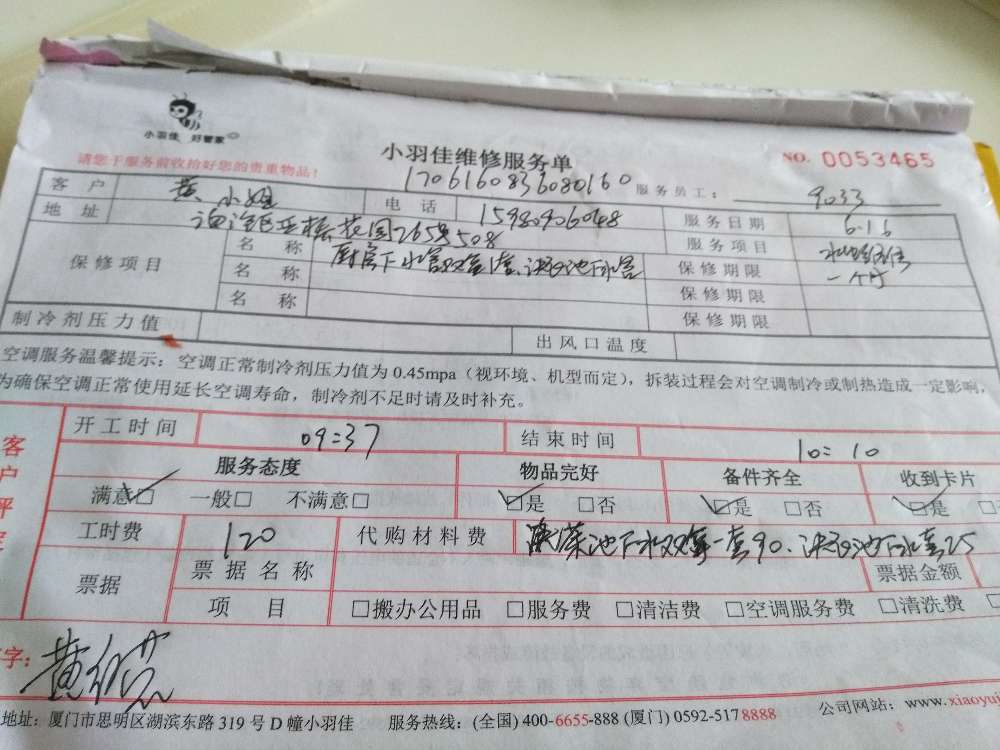 小羽佳 好管家
小羽佳维修服务单
NO. 0053465
请您于服务前收拾好您的贵重物品!
1706160836080160
服务员工: 9033
客户 黄小姐 电话 15980906048 服务日期 6.16
地址 花园265号508 服务项目
保修项目 名称 厨房下水管双套1套、洗手池下水管 保修期限 一个月
名称 保修期限
名称 保修期限
制冷剂压力值 出风口温度
空调服务温馨提示:空调正常制冷剂压力值为 0.45mpa(视环境、机型而定),拆装过程会对空调制冷或制热造成一定影响,
为确保空调正常使用延长空调寿命,制冷剂不足时请及时补充。
客户评
开工时间 09:37 结束时间 10:10
服务态度 物品完好 备件齐全 收到卡片
满意□ 一般□ 不满意□ □是 □否 □是 □否 □是
工时费 120 代购材料费 菜池下水双套一套90、洗手池下水套25
票据 票据名称 票据金额
项目 □搬办公用品 □服务费 □清洁费 □空调服务费 □清洗费
字:
地址:厦门市思明区湖滨东路 319 号 D 幢小羽佳 服务热线:(全国) 400-6655-888 (厦门) 0592-517 8888 公司网站:www.xiaoyuj